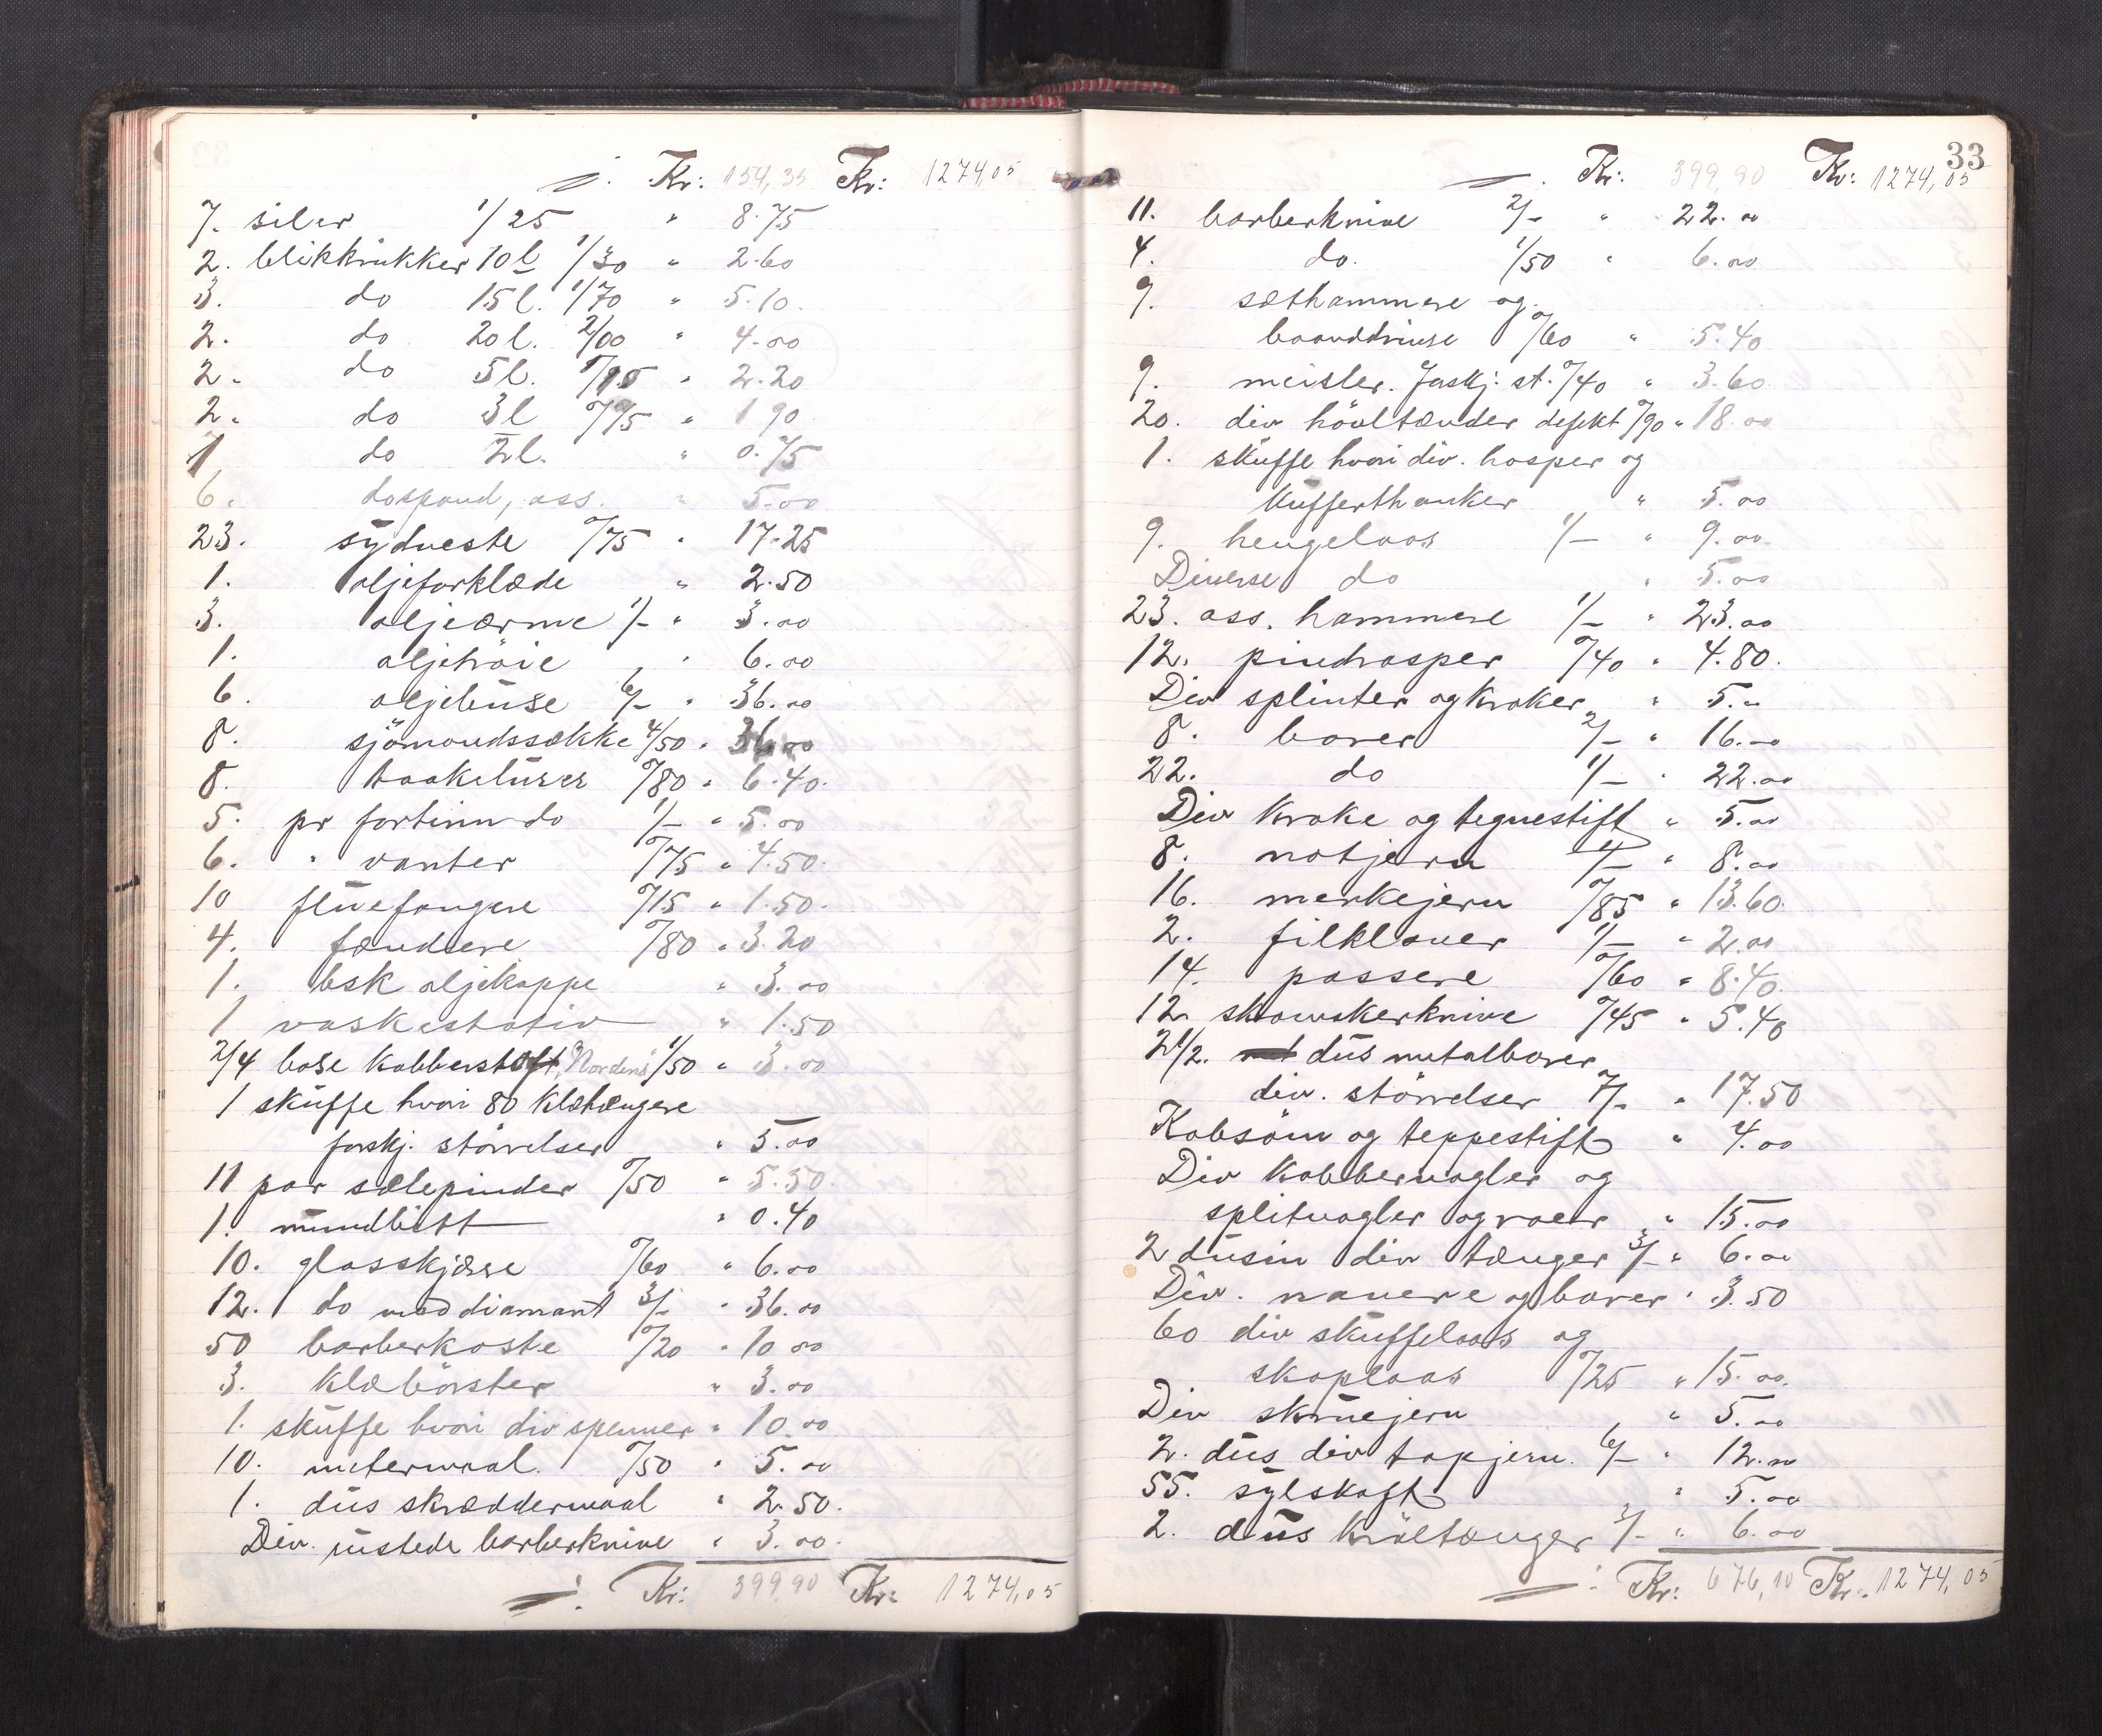 Kr: 154,35 Kr: 1274,05
7. siler 1/25 " 8.75
2. blikkrukker 10 l 1/30 " 2.60
3. do 15 l. 1/70 " 5.10.
2. do 20 l. 2/00 " 4.00
2. do 5 l. " 2.20
2. do 3 l 0/95 " 1 90
1 do 2 l. " 0.75
6. dospand, ass. " 5.00
23. sydveste 0/75 " 17.25
1. oljeforklæde " 2.50
3. oljeærme 1/- " 3.00
1. oljetröie " 6.00
6. oljebuse 6/- " 36.00
8. sjömandssække 4/50 " 36.00
8. taakelurer 0/80 " 6.40.
5. pr fortinn do 1/- " 5.00
6. " vanter 0/75 " 4.50.
10 fluefangere 0/15 " 1.50.
4. fændsere 0/80 " 3.20
1. bsk oljekappe " 3.00
1 vaskestativ " 1.50
2/4 base kobberstoft, Nordens 1/50 " 3.00
1 skuffe hvori 80 klohængere
forskj. störrelser " 5.00
11 par sælepinder 0/50 " 5.50.
1. mundbitt " 0.40
10. glasskjære 0/60 " 6.00
12. do med diamant 3/- " 36.00
50 barberkoste 0/20 " 10 00
3. klæbörster " 3.00
1. skuffe hvori div spenner " 10.00
10. metermaal. 0/50 " 5.00
1. dus skræddermaal " 2.50.
Div. rustede barberknive " 3.00.
Kr: 399,90 Kr: 1274,05
33
Kr: 399,90 Kr: 1274,05
11. barberknive 2/- " 22.00
4. do. 1/50 " 6.00
9. sæthammere og
baanddrivse 0/60 " 5.40
9. meisler. forskj. st. 0/40 " 3.60
20. div hövltænder defekt 0/90 " 18.00
1. skuffe hvori div. hasper og
kufferthanker " 5.00
9. hengelaas 1/- " 9.00
Diverse do " 5.00
23. ass. hammere 1/- " 23.00
12. pindrasper 0/40 " 4.80.
Div splinter og kroker " 5.-
8. borer 2/- " 16.00
22. do 1/- " 22.00
Div kroke og tegnestift " 5.00
8. notjern 1/- " 8.00
16. merkejern 0/85 " 13.60.
2. filklover 1/- " 2.00
14. passere 0/60 " 8.40.
12 skomakerknive 0/45 " 5.40
2 1/2. dus metalborer
div. störrelser 7/- " 17.50
Kobsöm og teppestift " 4.00
Div kobbernagler og
splitnagler og roer " 15.00
2 dusin div tænger 3/- " 6.00
Div. navere og borer " 3.50
60 div skuffelaas og
skaplaas 0/25 " 15.00.
Div skruejern " 5.00
2. dus div tapjern. 6/- " 12.00
55. sylskaft " 5.00
2. dus knöltænger 3/- " 6.00
Kr: 676,10 Kr: 1274,05